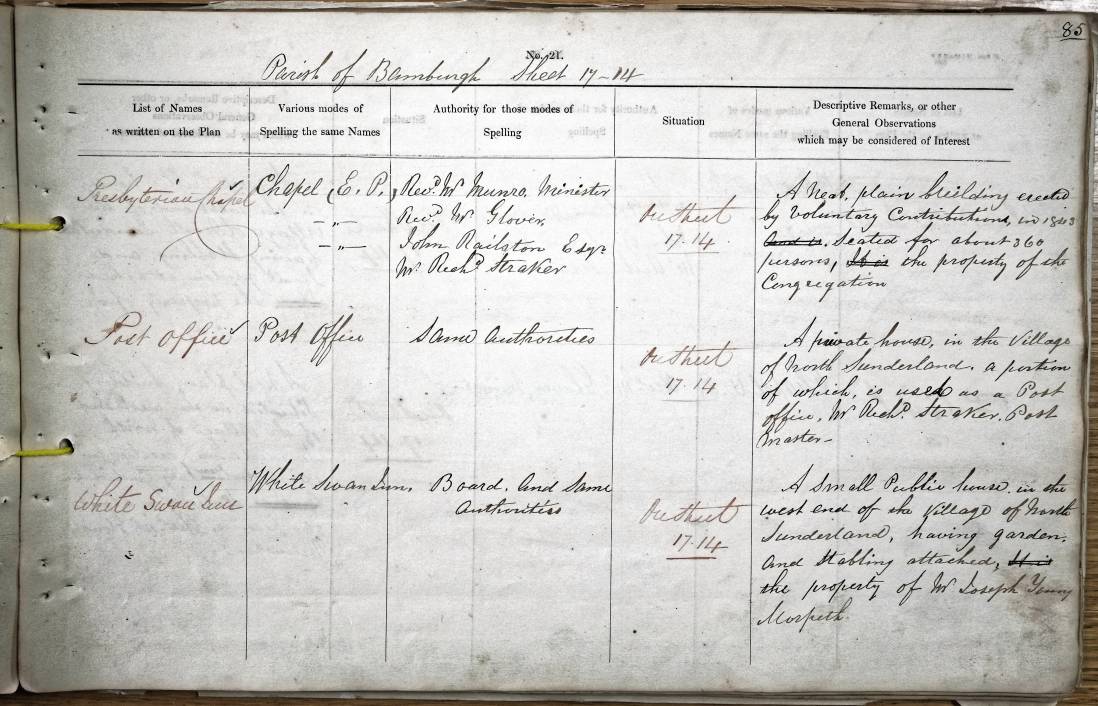 85
No. 21.
Parish of Bamburgh Sheet 17-14
List of Names
as written on the Plan
Various modes of
Spelling the same Names
Authority for those modes of
Spelling
Situation
Descriptive Remarks, or other
General Observations
which may be considered of Interest
Presbyterian Chapel
Chapel (E. P.)
-„-
-„-
Revd. Mr Munro. Minister
Revd. Mr Glover.
John Railston Esqr
Mr. Richd. Straker
On Sheet
17.14
A Neat, plain building erected
by Voluntary Contributions, in 1843
and is. Seated for about 360
persons, It is the property of the
Congregation
Post Office
Post Office
Same Authorities
On Sheet
17.14
A private house, in the Village
of North Sunderland. a portion
of which, is used as a Post
office, Mr Richd. Straker. Post
Master-
White Swan Inn
White Swan Inn,
Board. and Same
Authorities
On Sheet
17.14
A Small Public house. in the
west end of the Village of North
Sunderland, having garden,
and Stabling attached, It is
the property of Mr Joseph Young
Morpeth